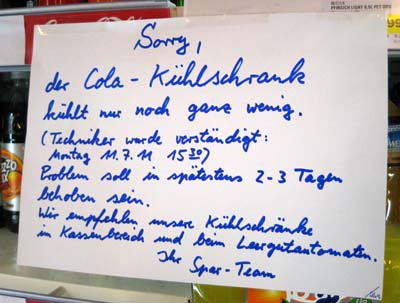 Sorry,
der Cola-Kühlschrank
kühlt nur noch ganz wenig.
(Techniker wurde verständigt:
Montag 11.7.11 15 30)
Problem soll in spätestens 2-3 Tagen
behoben sein.
Wir empfehlen unsere Kühlschränke
in Kassenbereich und beim Leergutautomaten.
Ihr Spar-Team
PFIRSICH LIGHT 0,5L PET DPG